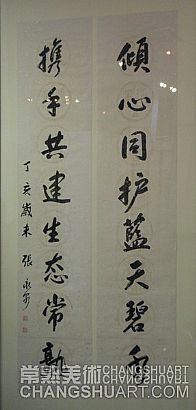 傾心同护藍天碧水
携手共建生态常熟
丁亥歲末 張永鈞
常熟美術
CHANGSHUART